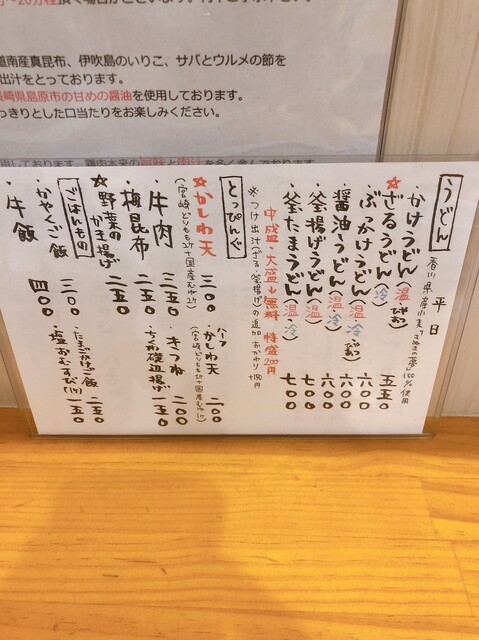 道南産真昆布、伊吹島のいりこ、サバとウルメの節を
出汁をとっております。
長崎県島原市の甘めの醤油を使用しております。
っきりとした口当たりをお楽しみください。
平日
うどん
香川県産小麦「さぬきの夢」100%使用
・かけうどん(温・ひやあつ)
☆ざるうどん(冷) 五五〇
・ぶっかけうどん(温・冷・ひやあつ) 六〇〇
・醤油うどん(温・冷) 六〇〇
・釜揚げうどん(温) 七〇〇
・釜たまうどん(温・冷) 七〇〇
中盛・大盛↓無料 特盛200円
※つけ出汁(ざる・釜揚げ)の追加おかわり+150円
とっぴんぐ
☆かしわ天 三〇〇
(宮崎どりもも2ケ+国産むね2ケ)
・ハーフかしわ天 二〇〇
(宮崎どりもも1ケ+国産むね1ケ)
・牛肉 三五〇
・きつね 二〇〇
・梅昆布 二五〇
・ちくわ磯辺揚げ 一五〇
☆野菜のかき揚げ 二五〇
ごはんもの
・かやくご飯 三〇〇
・たまごかけご飯 二五〇
・牛飯 四〇〇
・塩おむすび(1ケ) 一五〇